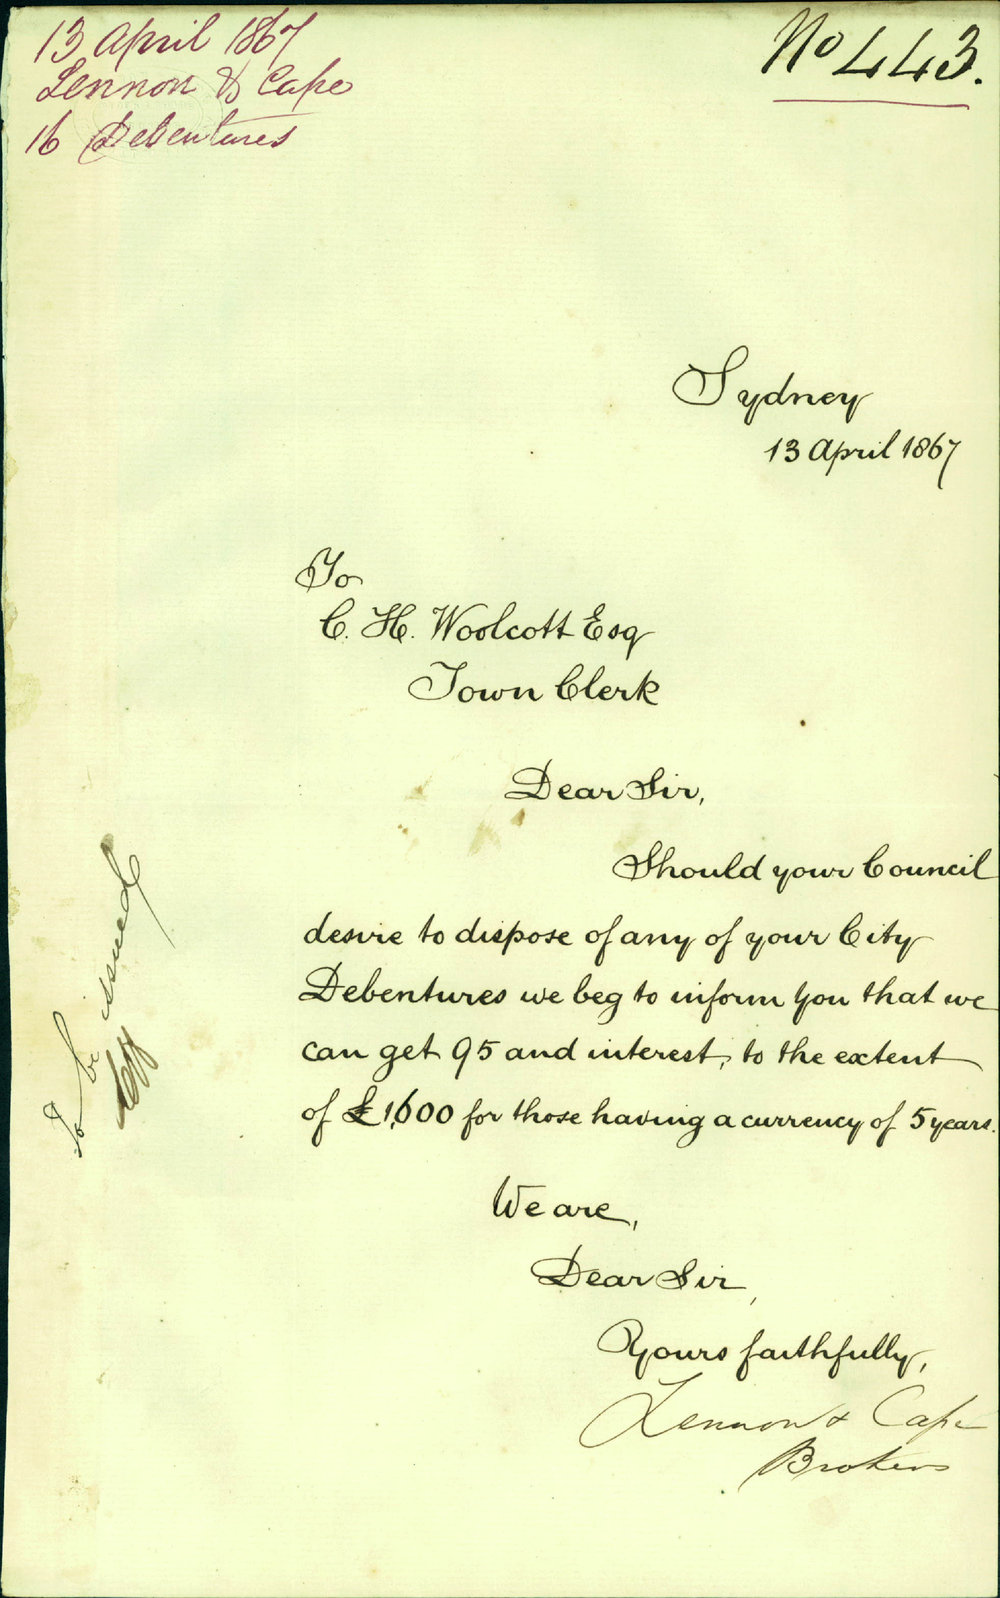 13 April 1867
Lennon & Cape
16 Debentures
No 443.
Sydney
13 April 1867
To
C. H. Woolcott Esq
Town Clerk
Dear Sir,
Should your Council
desire to dispose of any of your City
Debentures we beg to inform you that we
can get 95 and interest, to the extent
of £1,600 for those having a currency of 5 years.
We are,
Dear Sir,
Yours faithfully,
Lennon & Cape
Brokers
To be issued